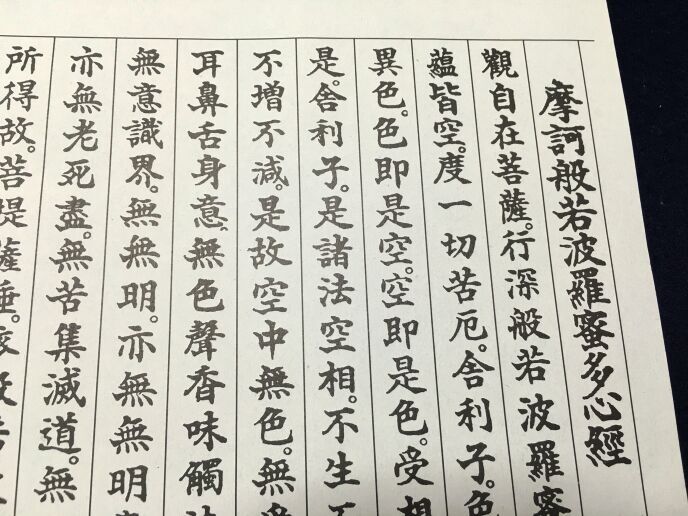 摩訶般若波羅蜜多心經
觀自在菩薩。行深般若波羅蜜
蘊皆空。度一切苦厄。舍利子。色
異色。色即是空。空即是色。受想
是。舍利子。是諸法空相。不生
不增不減。是故空中無色。無受
耳鼻舌身意。無色聲香味觸法
無意識界。無無明。亦無無明
亦無老死盡。無苦集滅道。無
所得故。菩提薩埵。依般若